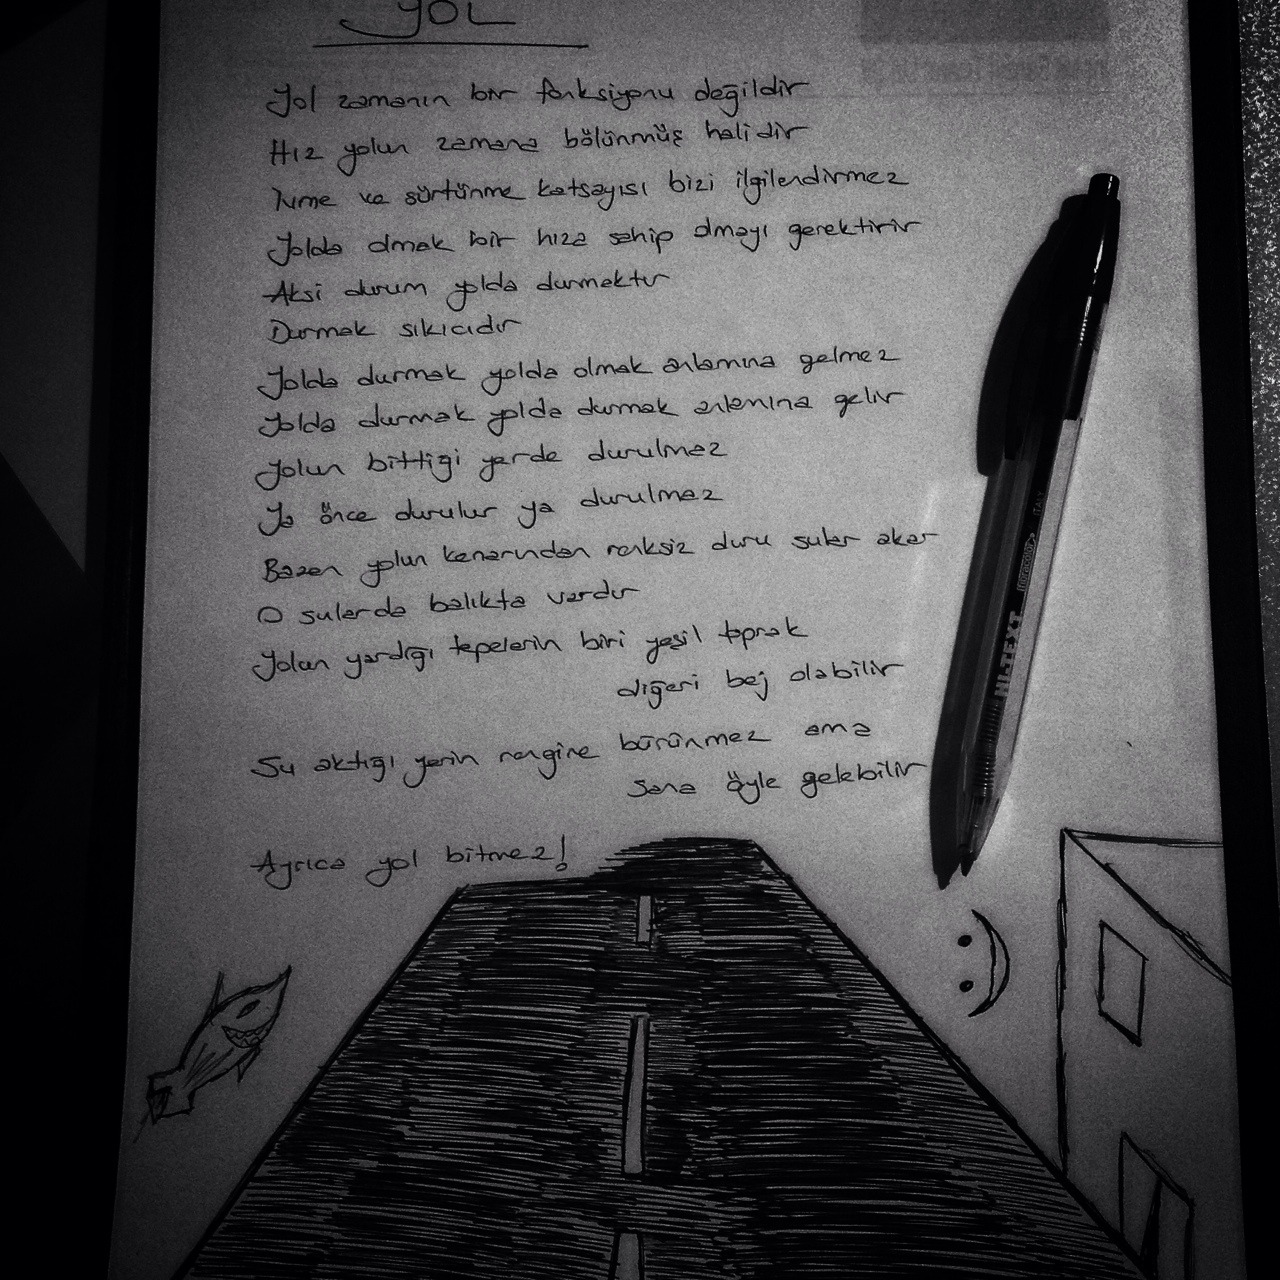 YOL
Yol zamanın bir fonksiyonu değildir
Hız yolun zamana bölünmüş halidir
İvme ve sürtünme katsayısı bizi ilgilendirmez
Yolda olmak bir hıza sahip olmayı gerektirir
Aksi durum yolda durmaktır
Durmak sıkıcıdır
Yolda durmak yolda olmak anlamına gelmez
Yolda durmak yolda durmak anlamına gelir
Yolun bittiği yerde durulmaz
Ya önce durulur ya durulmaz
Bazen yolun kenarından renksiz duru sular akar
O sularda balıkta vardır
Yolun yardığı tepelerin biri yeşil toprak
diğeri bej olabilir
Su aktığı yerin rengine bürünmez ama
sana öyle gelebilir
Ayrıca yol bitmez!
HI-TEXT